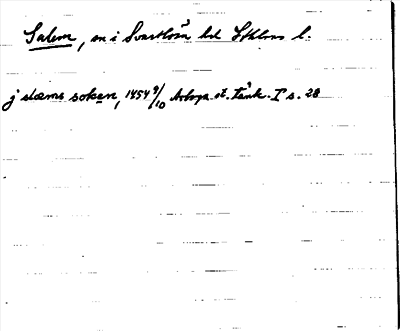 Salem, sn i Svartlösa hd Sthlms l.
j slæms soken, 1454 9/10 Arboga st. tänk. I s. 28